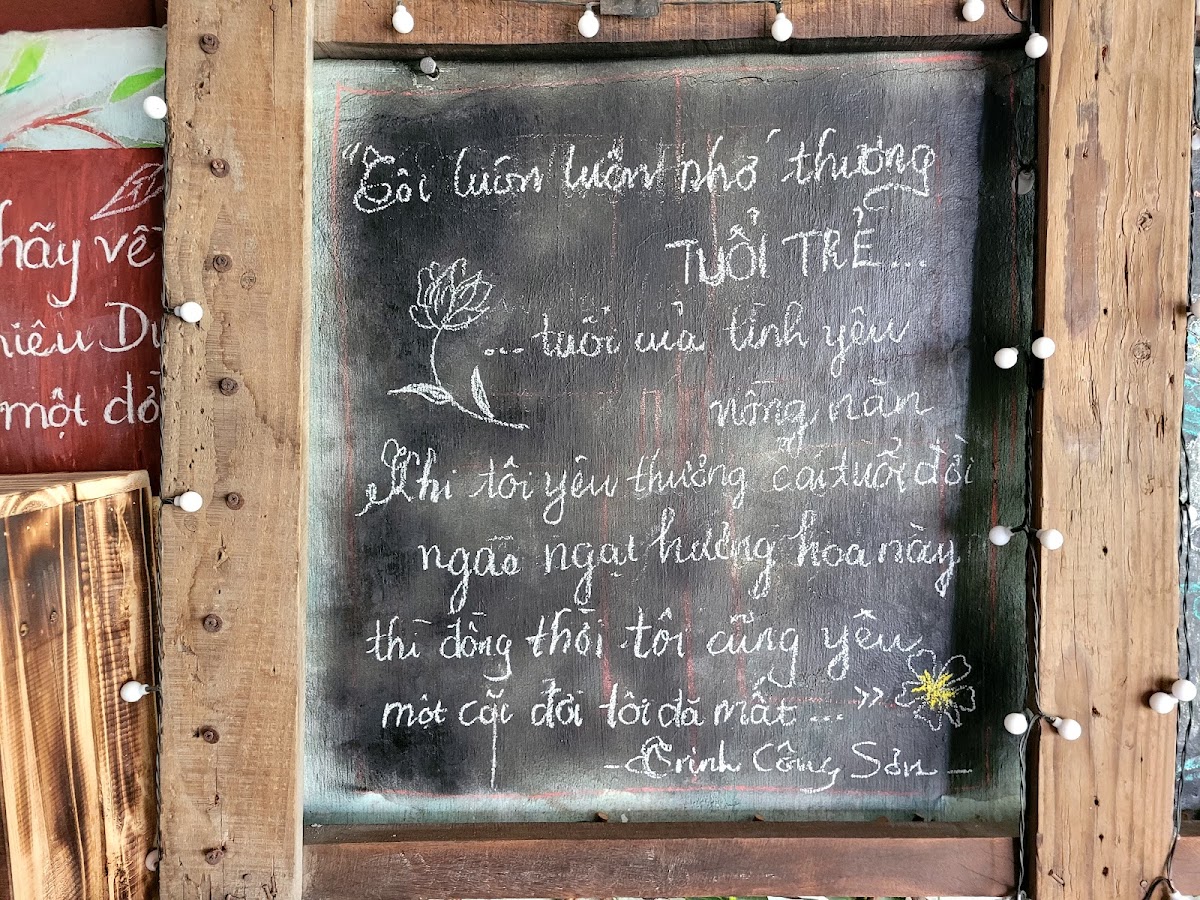 hãy về
một đờ
"Tôi luôn luôn nhớ thương
TUỔI TRẺ...
... tuổi của tình yêu
nồng nàn
Khi tôi yêu thương cái tuổi đời
ngào ngạt hương hoa này
thì đồng thời tôi cũng yêu
một cõi đời tôi đã mất ..."
- Trịnh Công Sơn -